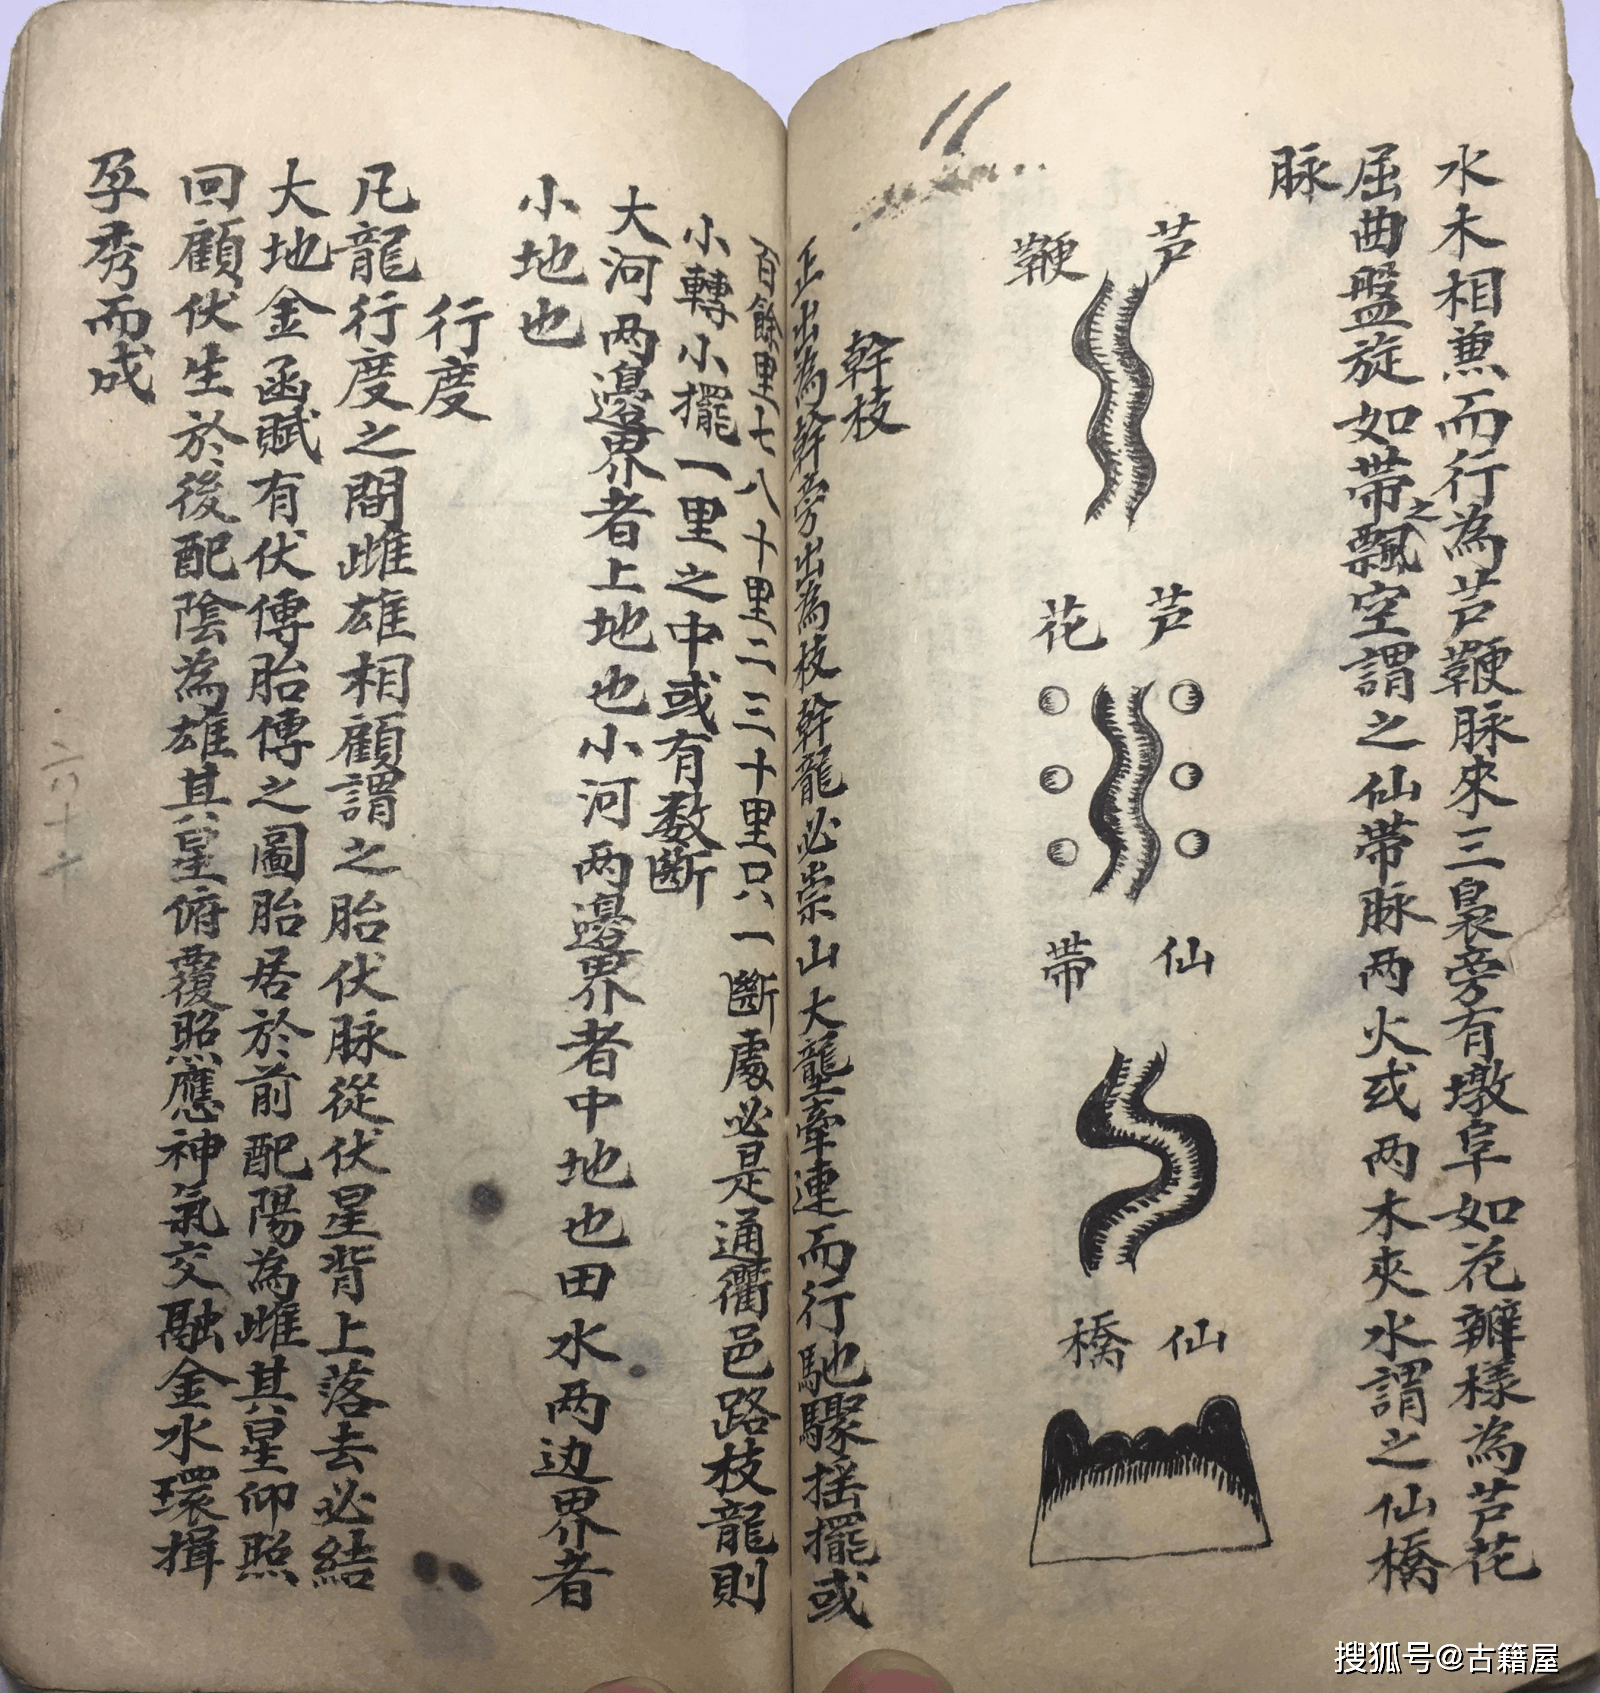 水木相兼而行為芦鞭脉來三裊旁有墩阜如花瓣樣為芦花
屈曲盤旋如帶之飄空謂之仙帶脉两火或两木夾水謂之仙橋
脉
芦鞭
芦花
仙帶
仙橋
幹枝
正出為幹旁出為枝幹龍必崇山大壟牽連而行馳驟摇擺或
百餘里七八十里二三十里只一斷處必是通衢邑路枝龍則
小轉小擺一里之中或有数斷
大河两邊界者上地也小河两邊界者中地也田水两边界者
小地也
行度
凡龍行度之間雌雄相顧謂之胎伏脉從伏星背上落去必結
大地金函賦有伏傳胎傳之圖胎居於前配陽為雌其星仰照
回顧伏生於後配陰為雄其星俯覆照應神氣交融金水環揖
孕秀而成
搜狐号@古籍屋